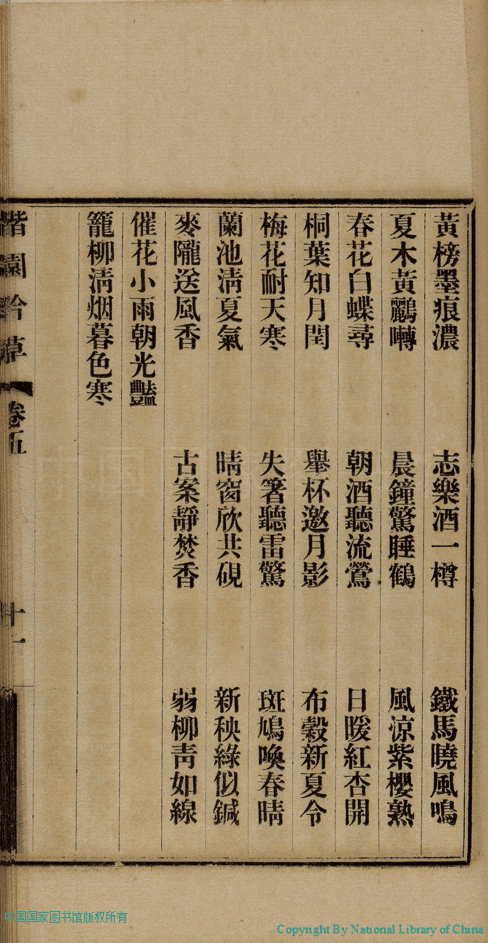 黃榜墨痕濃　志樂酒一樽　鐵馬曉風鳴
夏木黃鸝囀　晨鐘驚睡鶴　風涼紫櫻熟
春花白蝶尋　朝酒聽流鶯　日暖紅杏開
桐葉知月閏　舉杯邀月影　布穀新夏令
梅花耐天寒　失箸聽雷驚　斑鳩喚春晴
蘭池淸夏氣　晴窗欣共硯　新秧綠似鍼
麥隴送風香　古案靜焚香　弱柳靑如線
催花小雨朝光豔
籠柳淸烟暮色寒
卷五
十一
中国国家图书馆版权所有
Copyright By National Library of China